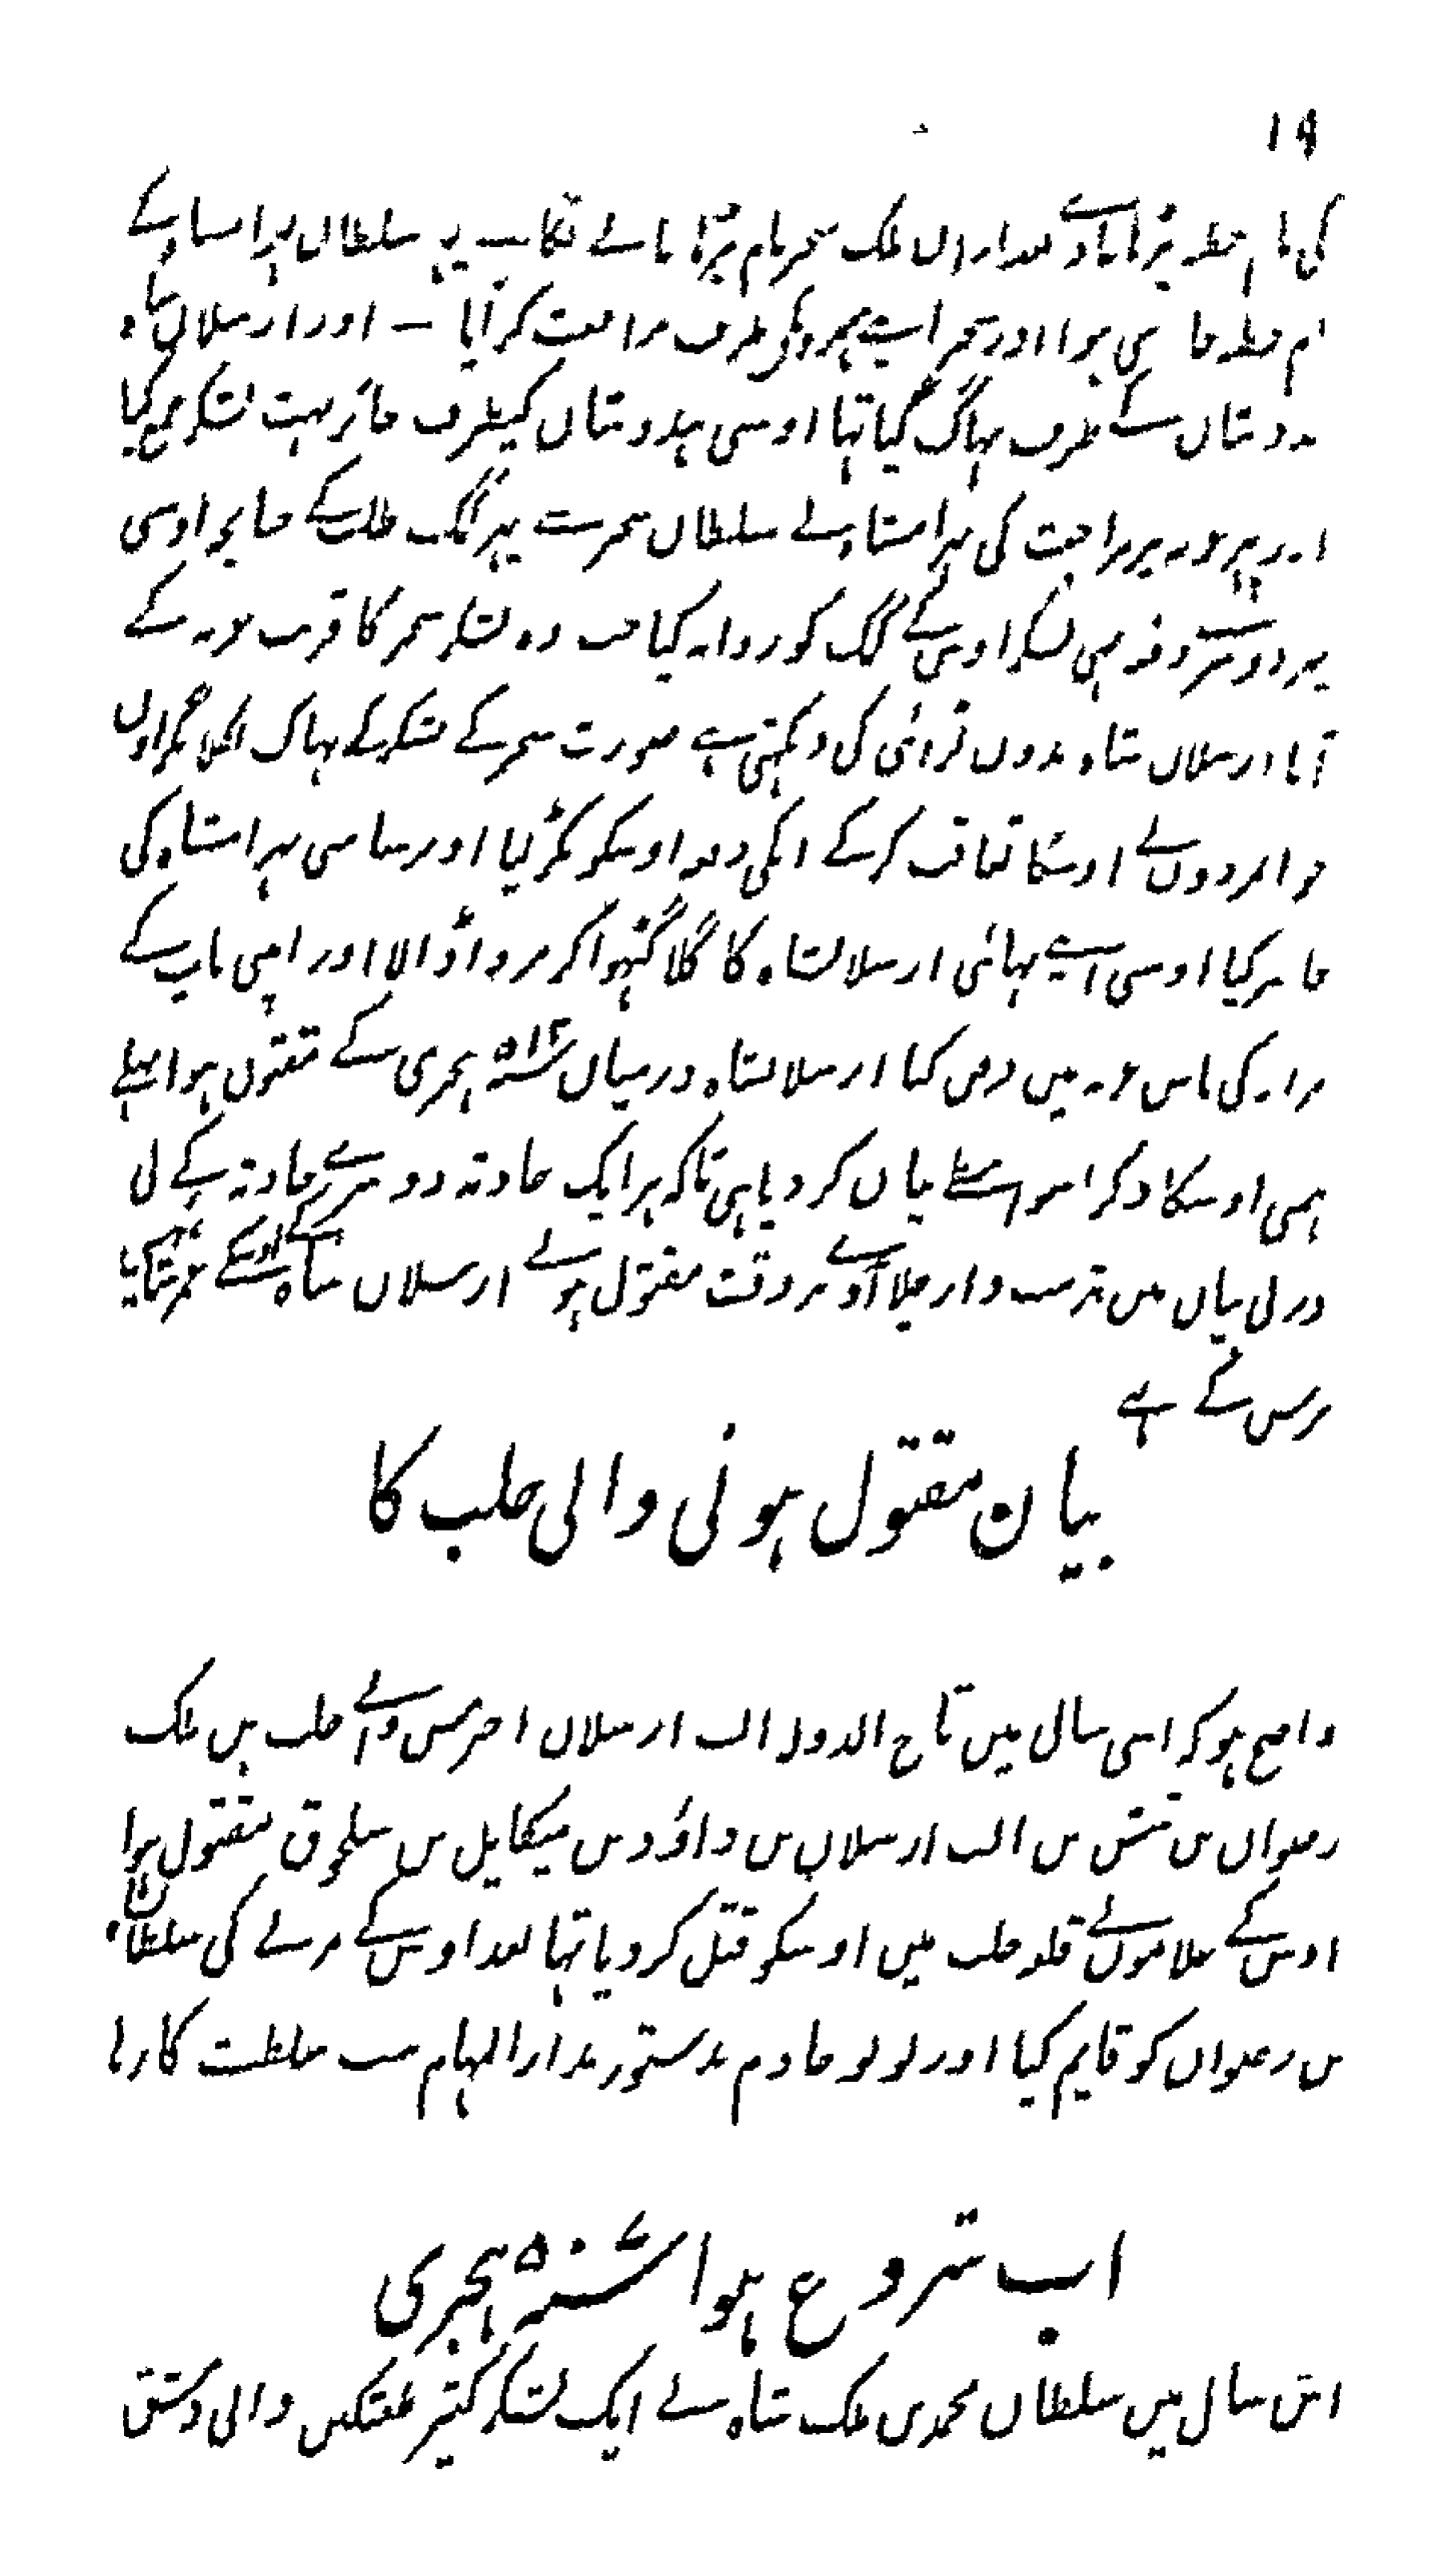 ۱۹
کی نام خطبہ پڑھا جاوے بعد ازاں ملک سنجر نام پڑھا جائے نکابے یہہ سلطاں بہرامشاہ کے
نام خطبہ جاری ہوا اور سنجر اپنے شہروںکی طرف مراجعت کر آیا — اور ارسلاں شاہ
ہندوستاں کے طرف بہاگ گیا تہا اوسی ہندوستاں کیطرف جاکر بہت لشکر جمع کیا
اور پہر غزنہ پر مراجعت کی بہرامشاہ نے سلطاں سنجر سے پہر کمک طلب کے چنانچہ اوسی
پہر دوسرے دفعہ بہی لشکر اوس کے کمک کو روانہ کیا جب وہ لشکر سنجر کا قریب غزنہ کے
آیا ارسلاں شاہ بدوں لڑائی کی دیکہتی ہے صورت سنجر کے لشکر کے بہاگ نکلا مگر اون
جوانمردوں نے اوسکا تعاقب کر کے ابکی دفعہ اوسکو پکڑ لیا اور سامنی بہرامشاہ کی
حاضر کیا اوسی اپنے بہائی ارسلانشاہ کا گلا گہٹوا کر مروا ڈالا اور اپنی باپ کے
مزار کی پاس غزنہ میں دفن کیا ارسلانشاہ درمیاں سنہ ۵۱۲ ہجری کے مقتول ہوا پہلے
ہمنی اوسکا ذکر اسواسطے بیاں کر دیا ہی تاکہ ہر ایک حادثہ دوسرے حادثہ کے
بیاں میں ترتیب وار چلا آوے بروقت مقتول ہونے ارسلاں شاہ کے اوسکے عمر ستائیس
برس کے ہے
بیان مقتول ہونی والی حلب کا
واضح ہو کہ اسی سال میں تاج الدولہ الب ارسلاں اخرس والے حلب بن ملک
رضواں بن تتش بن الب ارسلاں بن داؤد بن میکایل بن سلجوق مقتول ہوا
اوس کے غلاموں نے قلعہ حلب میں اوسکو قتل کر دیا تہا بعد اوس کے مرنے کی سلطان شاہ
بن رضواں کو قایم کیا اور لولو خادم بدستور مدار المہام سب سلطنت کا رہا
اب شروع ہوا سنہ ۵۰۹ ہجری
اس سال میں سلطاں محمد بن ملک شاہ نے ایک لشکر کثیر طغتکیں والی دمشق